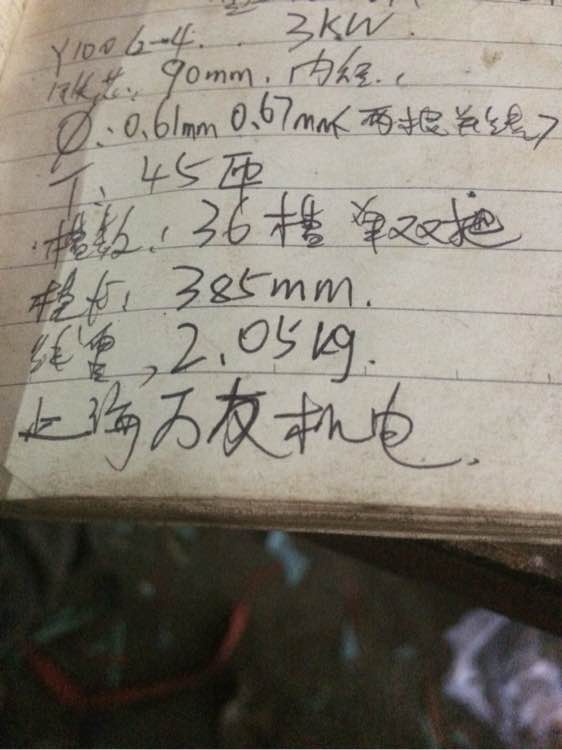 Y100L-4. 3KW.
铁芯: 90mm. 内径.
Ø: 0.61mm 0.67mm 两根并绕
T: 45匝
槽数: 36槽 单双把
模长: 385mm.
线重, 2.05kg.
上海万友机电.